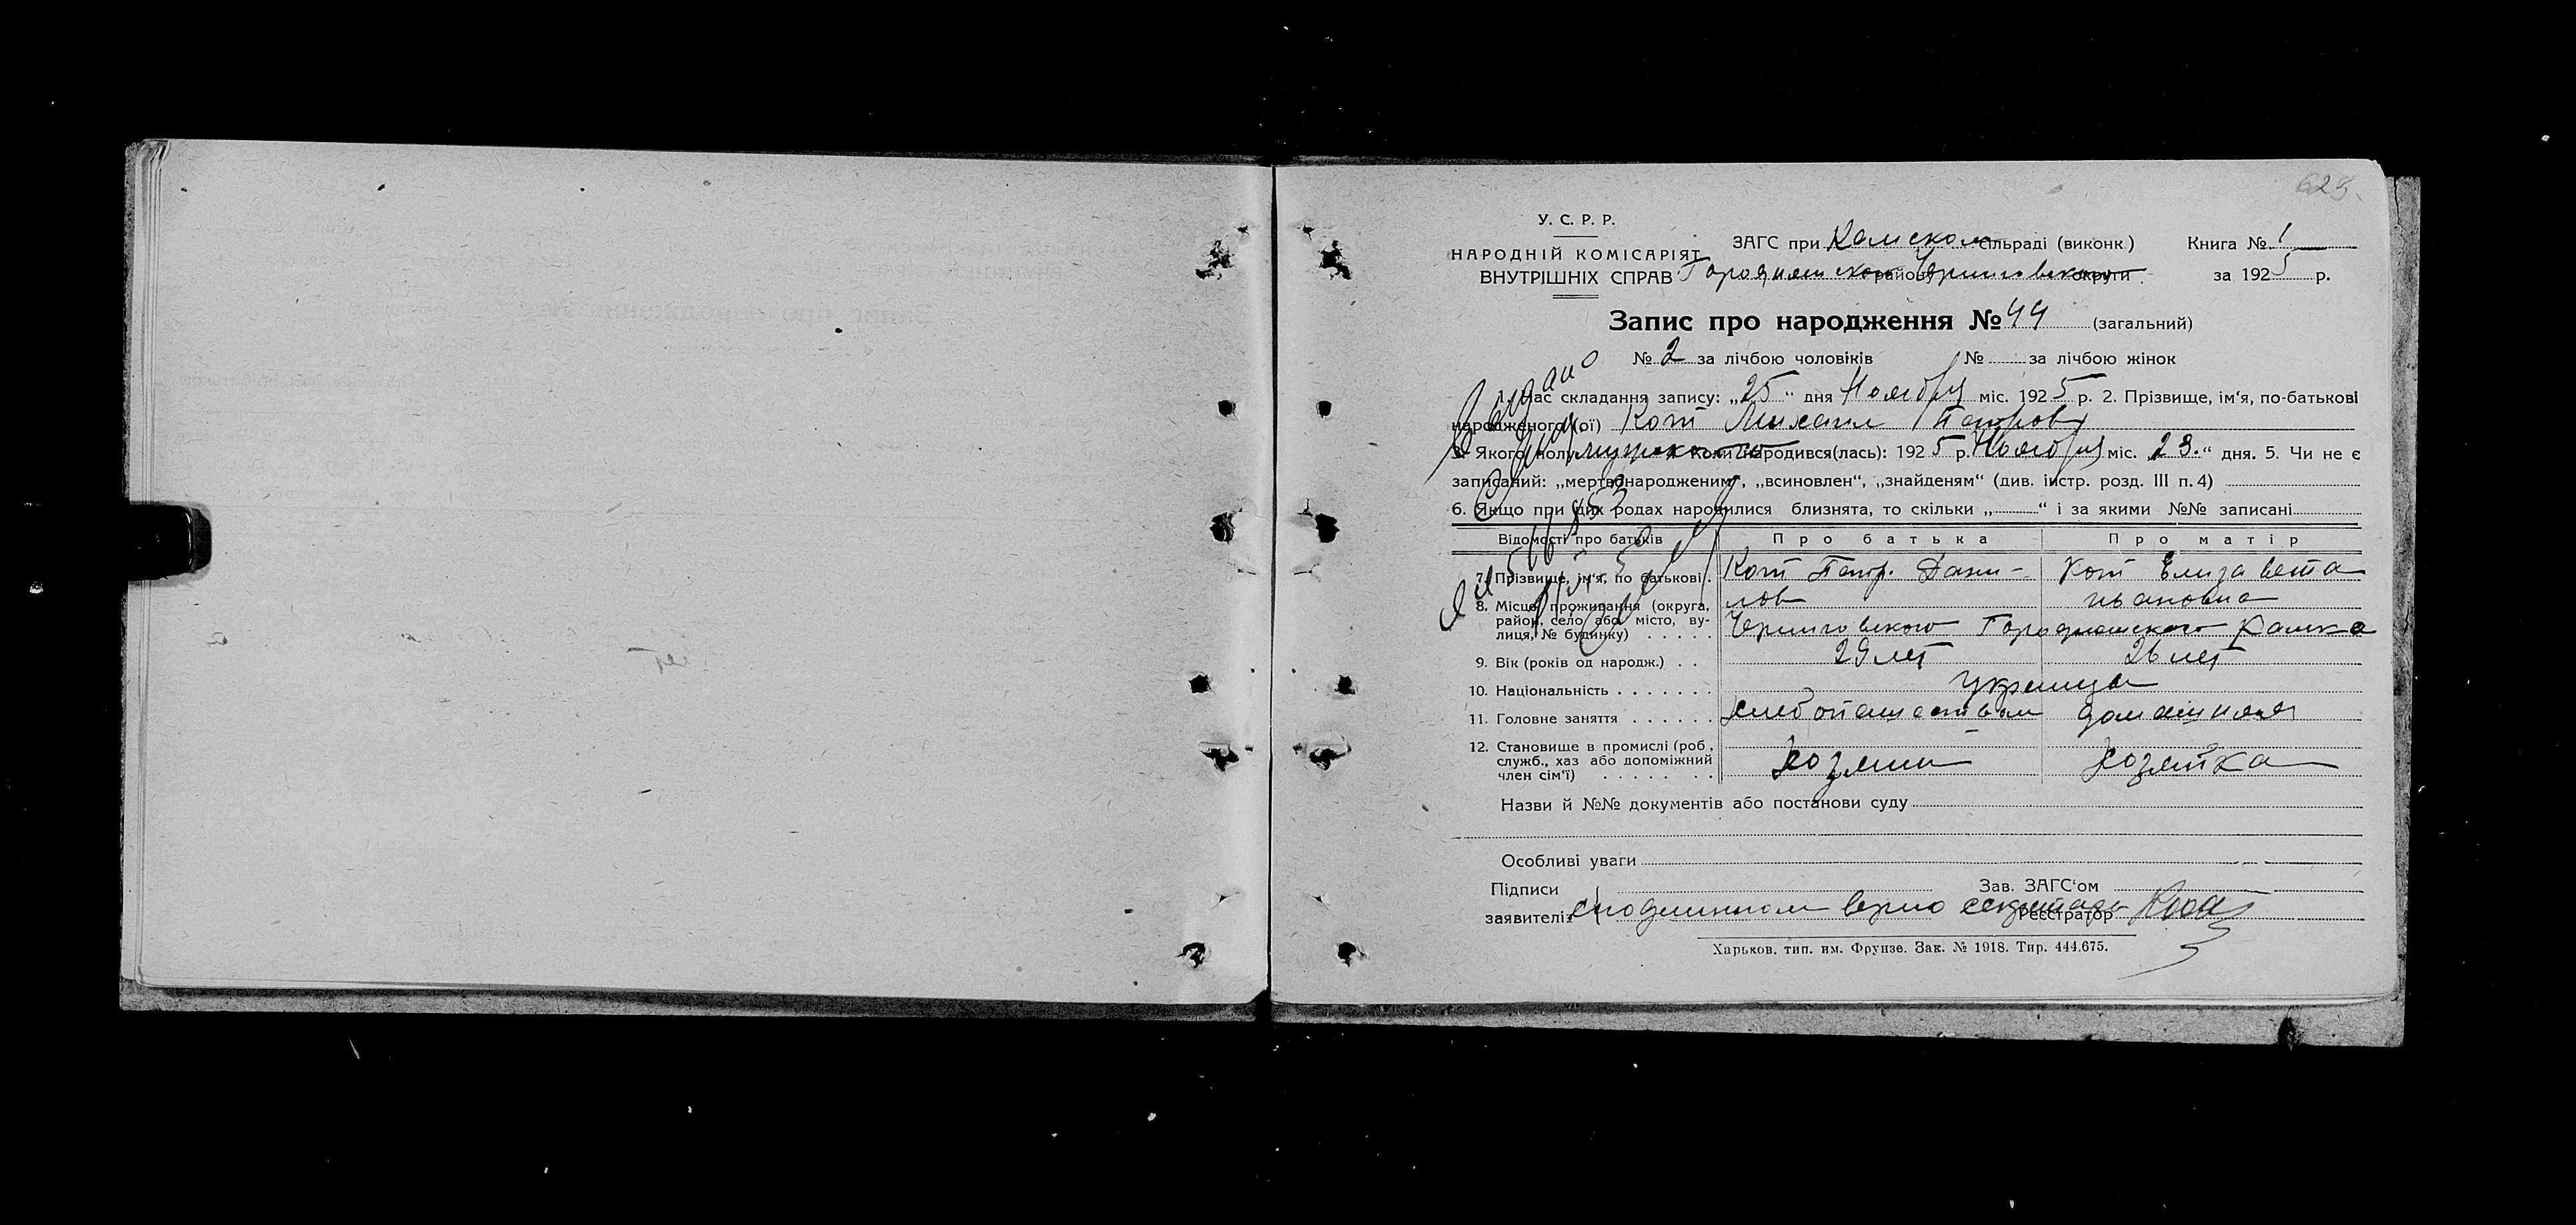 У. С. Р. Р.
НАРОДНІЙ КОМІСАРІЯТ
ВНУТРІШНІХ СПРАВ
ЗАГС при Камском сільраді (виконк)
Городнянского району Черниговского округи.
Книга № 1
за 1925 р.
Запис про народження № 44 (загальний)
№ 2 за лічбою чоловіків № за лічбою жінок
1. Час складання запису: „25“ дня Ноября міс. 1925 р. 2. Прізвище, ім'я, по-батькові
народженого (ої) Кот Михаил Петров
3. Якого полу мужского Коли народився(лась): 1925 р. Ноября міс. „23.“ дня. 5. Чи не є
записаний: „мертвонародженим“, „всиновлен“, „знайденям“ (див. інстр. розд. III п. 4)
6. Якщо при цих родах народилися близнята, то скільки „ “ і за якими №№ записані
Відомості про батьків Про батька Про матір
7. Прізвище, ім'я, по батькові. Кот Петр. Дани- Кот Елизавета
лов
8. Місце проживання (округа, район, село або місто, ву-
лиця, № будинку) Черниговского Городнянского Камка
9. Вік (років од народж.) 29 лет 26 лет
10. Національність украинцы
11. Головне заняття хлебопашеством домашняя
12. Становище в промислі (роб.,
служб., хаз або допоміжний
член сім'ї) Хозяин Хозяйка
Назви й №№ документів або постанови суду
Особливі уваги
Підписи Зав. ЗАГС'ом
заявителів с подлинном верно секретарь Реєстратор
Харьков. тип. им. Фрунзе. Зак. № 1918. Тир. 444.675.
Выдано